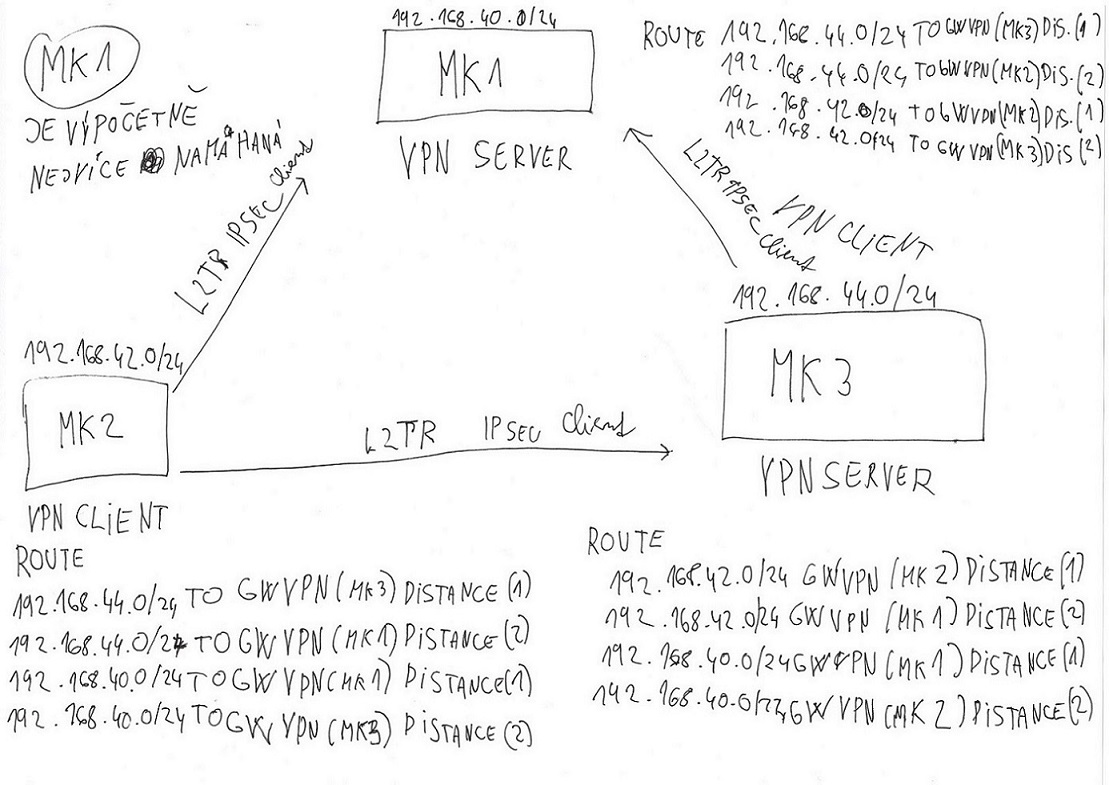 MK1
JE VÝPOČETNĚ
NEJVÍCE NAMÁHANÁ
192.168.40.0/24
MK1
VPN SERVER
ROUTE 192.168.44.0/24 TO GWVPN(MK3)DIS.(1)
192.168.44.0/24 TO GWVPN(MK2)DIS.(2)
192.168.42.0/24 TO GWVPN(MK2)DIS.(1)
192.168.42.0/24 TO GWVPN(MK3)DIS(2)
L2TP IPSEC client
L2TP IPSEC client
VPN CLIENT
192.168.44.0/24
MK3
VPN SERVER
192.168.42.0/24
MK2
VPN CLIENT
L2TP IPSEC client
ROUTE
192.168.44.0/24 TO GWVPN(MK3) DISTANCE(1)
192.168.44.0/24 TO GWVPN(MK1) DISTANCE(2)
192.168.40.0/24 TO GWVPN(MK1) DISTANCE(1)
192.168.40.0/24 TO GW VPN(MK3) DISTANCE(2)
ROUTE
192.168.42.0/24 GWVPN(MK2) DISTANCE(1)
192.168.42.0/24 GWVPN(MK1) DISTANCE(2)
192.168.40.0/24 GWVPN(MK1) DISTANCE(1)
192.168.40.0/24 GWVPN(MK2) DISTANCE(2)